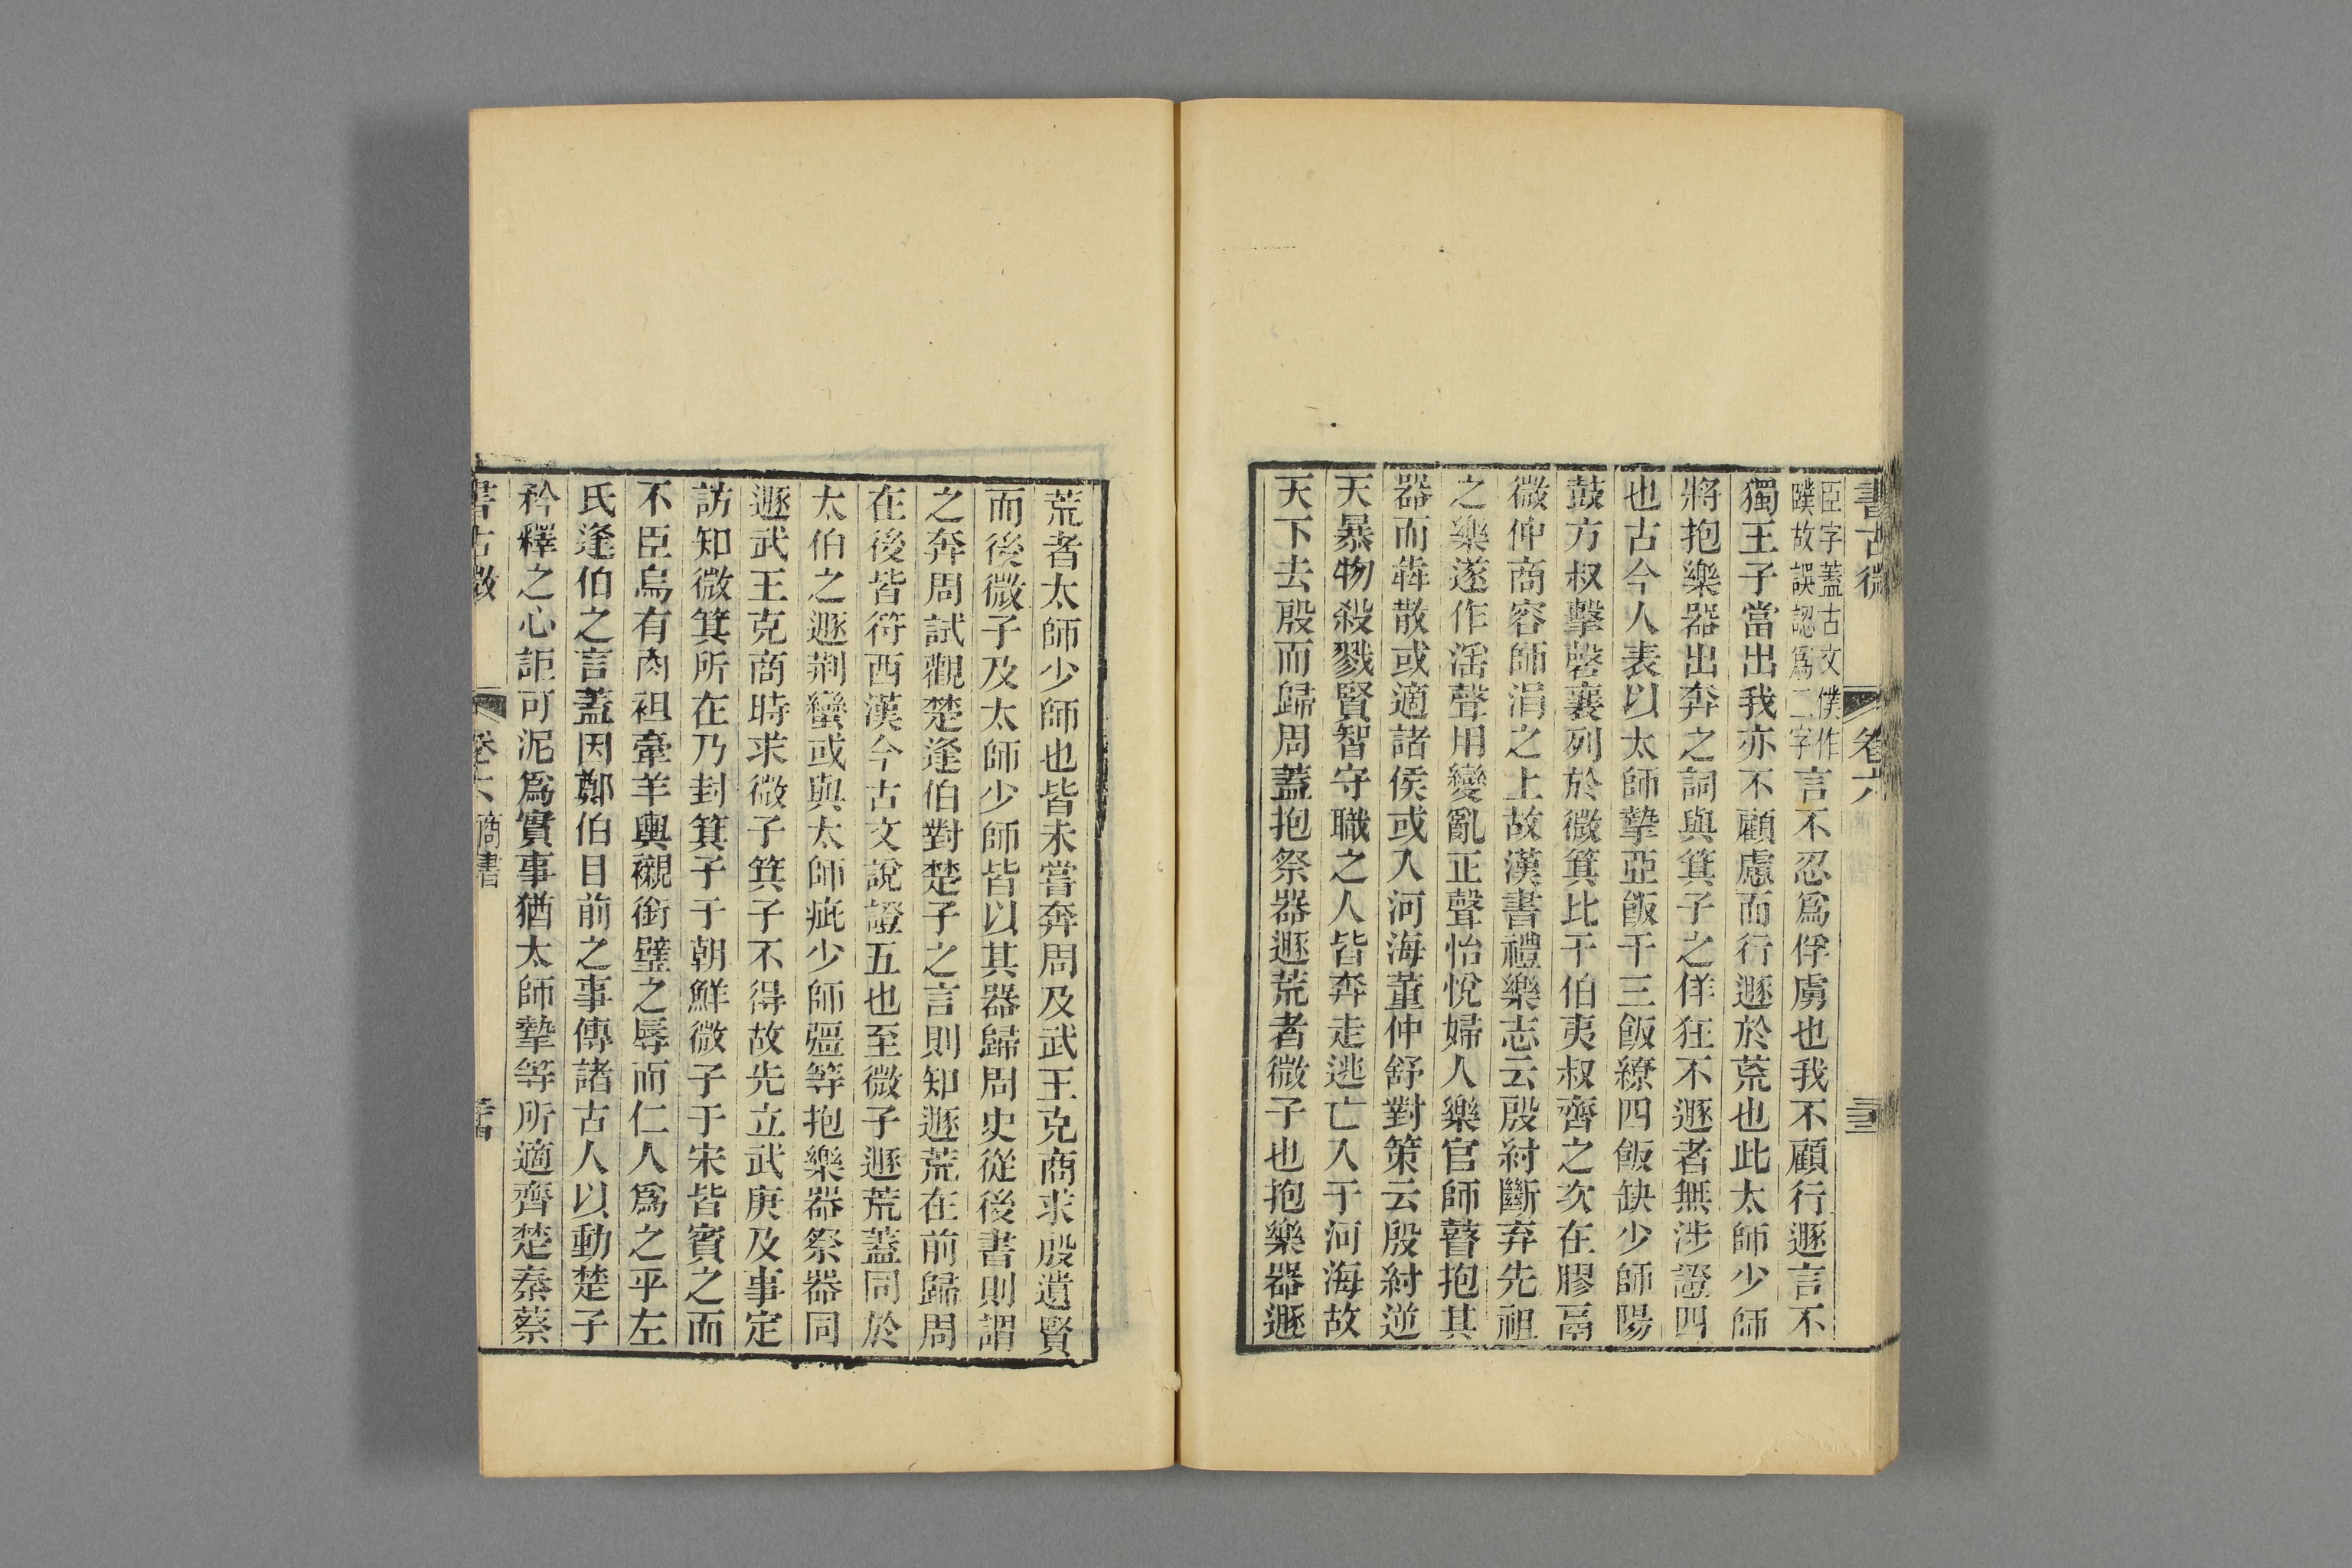 書古微 卷六
臣字蓋古文僕作
蹼故誤認爲二字
言不忍爲俘虜也我不顧行遯言不
獨王子當出我亦不顧慮而行遯於荒也此太師少師
將抱樂器出奔之詞與箕子之佯狂不遯者無涉證四
也古今人表以太師摯亞飯干三飯繚四飯缺少師陽
鼓方叔擊磬襄列於微箕比干伯夷叔齊之次在膠鬲
微仲商容師涓之上故漢書禮樂志云殷紂斷弃先祖
之樂遂作淫聲用變亂正聲怡悅婦人樂官師瞽抱其
器而犇散或適諸侯或入河海董仲舒對策云殷紂逆
天暴物殺戮賢智守職之人皆奔走逃亡入于河海故
天下去殷而歸周蓋抱祭器遯荒者微子也抱樂器遯
荒者太師少師也皆未嘗奔周及武王克商求殷遺賢
而後微子及太師少師皆以其器歸周史從後書則謂
之奔周試觀楚逢伯對楚子之言則知遯荒在前歸周
在後皆符西漢今古文說證五也至微子遯荒蓋同於
太伯之遯荆蠻或與太師疵少師彊等抱樂器祭器同
遯武王克商時求微子箕子不得故先立武庚及事定
訪知微箕所在乃封箕子于朝鮮微子于宋皆賓之而
不臣烏有肉袒牽羊輿櫬銜璧之辱而仁人爲之乎左
氏逢伯之言蓋因鄭伯目前之事傳諸古人以動楚子
矜釋之心詎可泥爲實事猶太師摯等所適齊楚秦蔡
書古微 卷六 商書